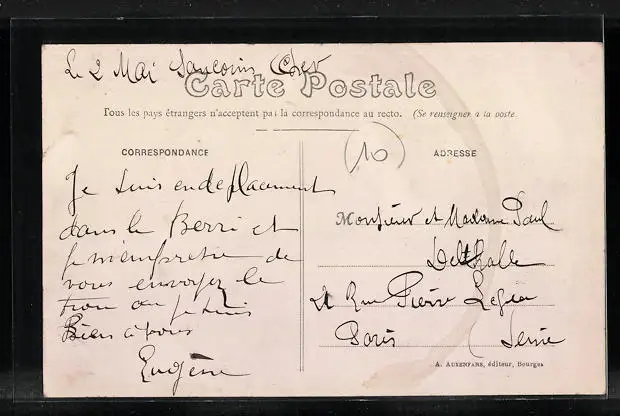 Le 2 Mai Sancoins Cher
Carte Postale
Tous les pays étrangers n'acceptent pas la correspondance au recto. (Se renseigner a la poste.
10
CORRESPONDANCE
Je suis en deplacement
dans le Berri et
je m'empresse de
vous envoyer le
trou ou je suis
Bien à vous
Eugène
ADRESSE
Monsieur et Madame Paul
Delthalle
Rue Pierre
Paris Seine
A. AUXENFANS, éditeur, Bourges